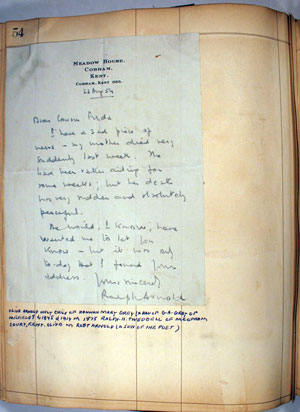 54
MEADOW HOUSE,
COBHAM,
KENT.
COBHAM, KENT
26 Aug 54
Dear Cousin
I have a sad piece of
news - my mother died very
suddenly last week. She
had been rather ailing for
some weeks; but her death
was very sudden and absolutely
peaceful.
She would, I know, have
wanted me to let you
know - but it was only
to-day that I found your
address.
Yours sincerely
Ralph Arnold
ONLY CHILD OF HANNAH MARY GREY
1875 RALPH. H. TWEDDELL OF MEOPHAM
COURT, KENT. ARNOLD (A SON OF THE POET)